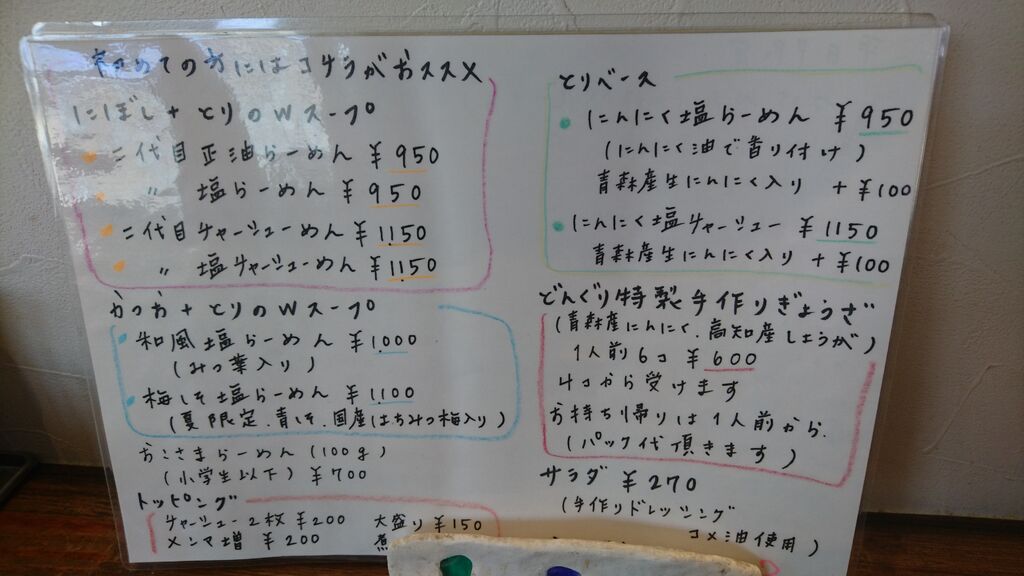 初めての方にはコチラがおススメ
にぼし+とりのWスープ
二代目正油らーめん ¥950
〃 塩らーめん ¥950
二代目チャーシューめん ¥1150
〃 塩チャーシューめん ¥1150
かつお+とりのWスープ
和風塩らーめん ¥1000
(みつ葉入り)
梅しそ塩らーめん ¥1100
(夏限定.青しそ.国産はちみつ梅入り)
おこさまらーめん(100g)
(小学生以下) ¥700
トッピング
チャーシュー2枚 ¥200 大盛り ¥150
メンマ増 ¥200
とりベース
にんにく塩らーめん ¥950
(にんにく油で香り付け)
青森産生にんにく入り +¥100
にんにく塩チャーシュー ¥1150
青森産生にんにく入り +¥100
どんぐり特製手作りぎょうざ
(青森産にんにく.高知産しょうが)
1人前6コ ¥600
4コから受けます
お持ち帰りは1人前から.
(パック代頂きます)
サラダ ¥270
(手作りドレッシング
コメ油使用)